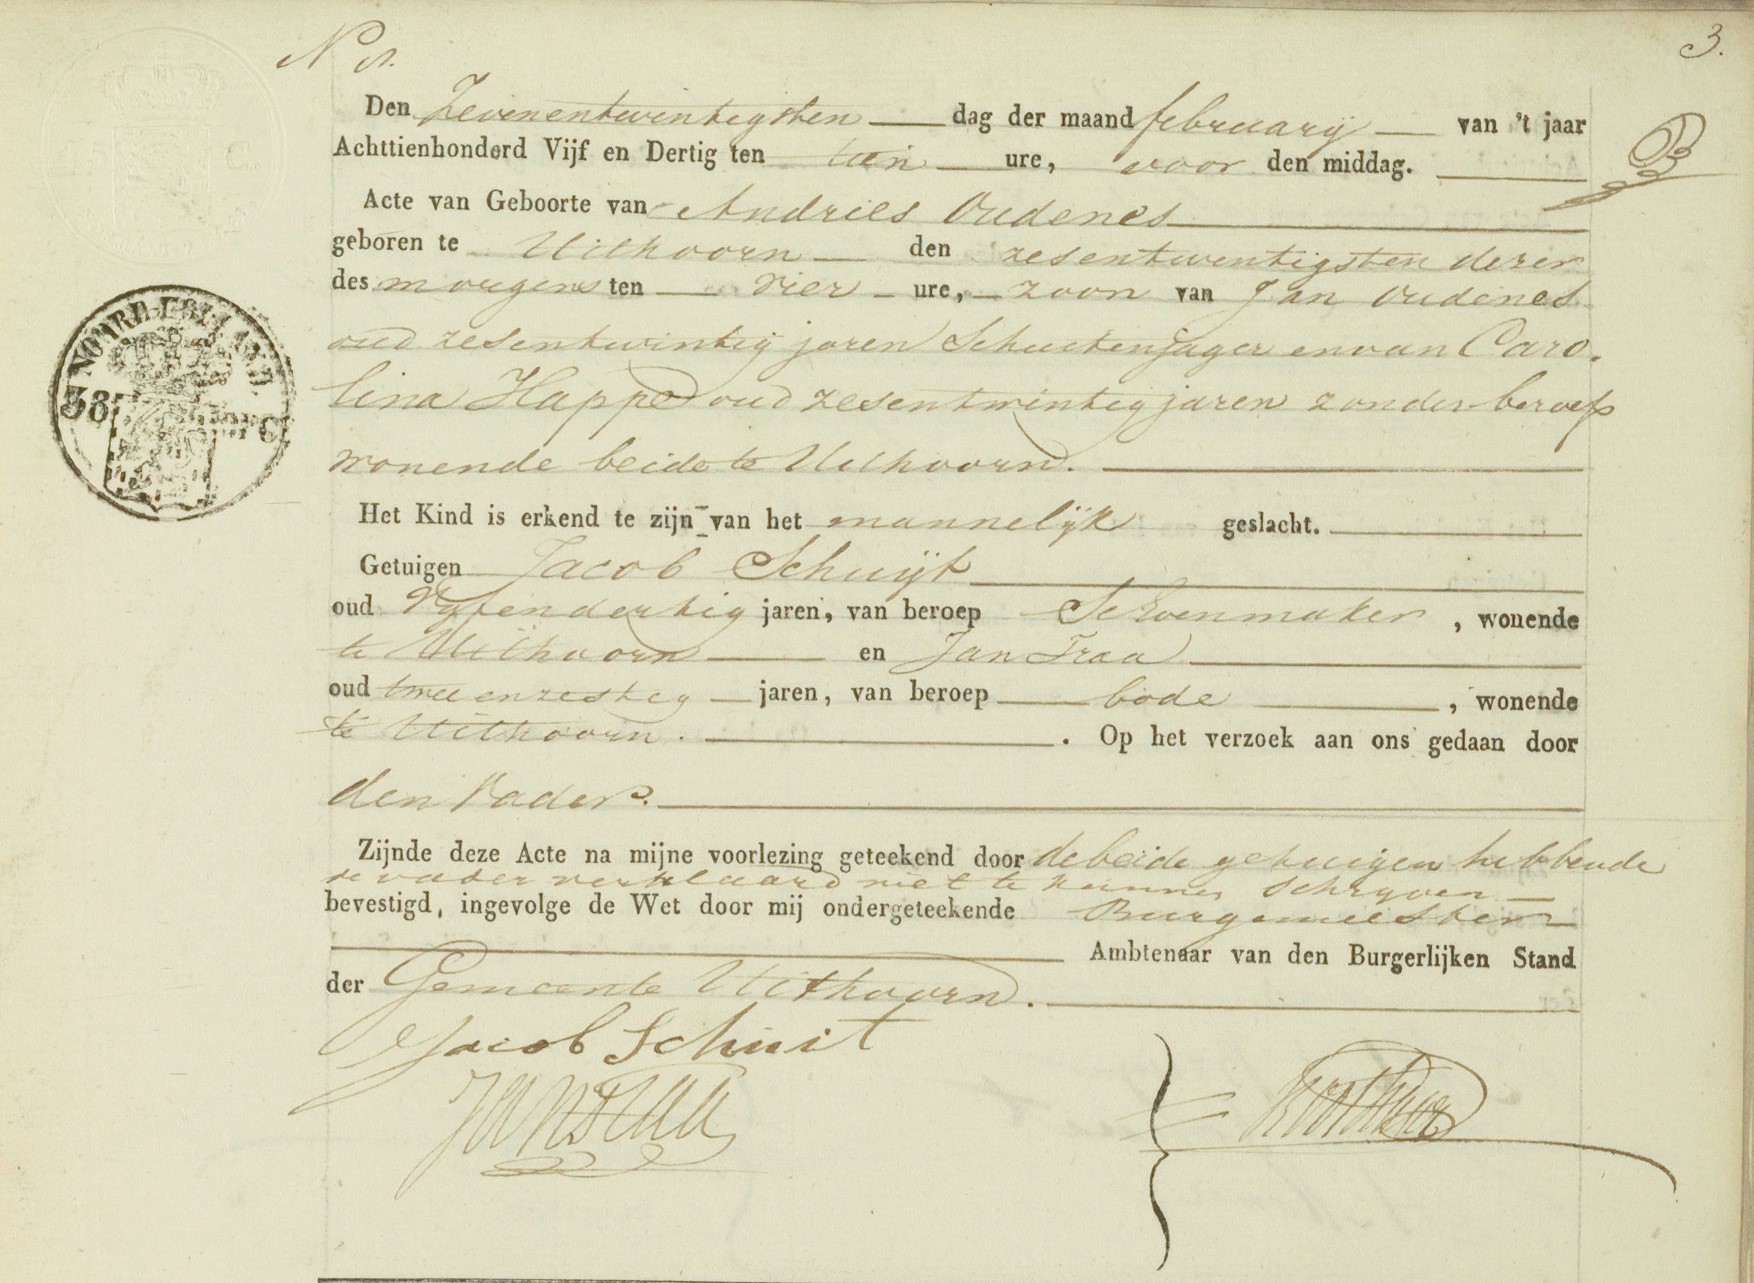 3.
Den Zevenentwintigsten dag der maand february van 't jaar
Achttienhonderd Vijf en Dertig ten tien ure, voor den middag.
Acte van Geboorte van Andries Oudenes
geboren te Uithoorn den zesentwentigsten dezer
des morgens ten vier ure, zoon van Jan Oudenes
oud zesentwintig jaren Schuitenjager en van Caro-
lina Happe oud zesentwintig jaren zonder beroep
wonende beide te Uithoorn.
NOORD-HOLLAND
38
Het Kind is erkend te zijn van het mannelijk geslacht.
Getuigen Jacob Schuijt
oud Vyfendertig jaren, van beroep Schoenmaker, wonende
te Uithoorn en Jan Traa
oud twee en zestig jaren, van beroep bode, wonende
te Uithoorn. Op het verzoek aan ons gedaan door
den Vader.
Zijnde deze Acte na mijne voorlezing geteekend door de beide getuigen hebbende
de vader verklaard niet te kunnen schryven
bevestigd, ingevolge de Wet door mij ondergeteekende Burgemeester
Ambtenaar van den Burgerlijken Stand
der Gemeente Uithoorn.
Jacob Schuit
Jan Traa